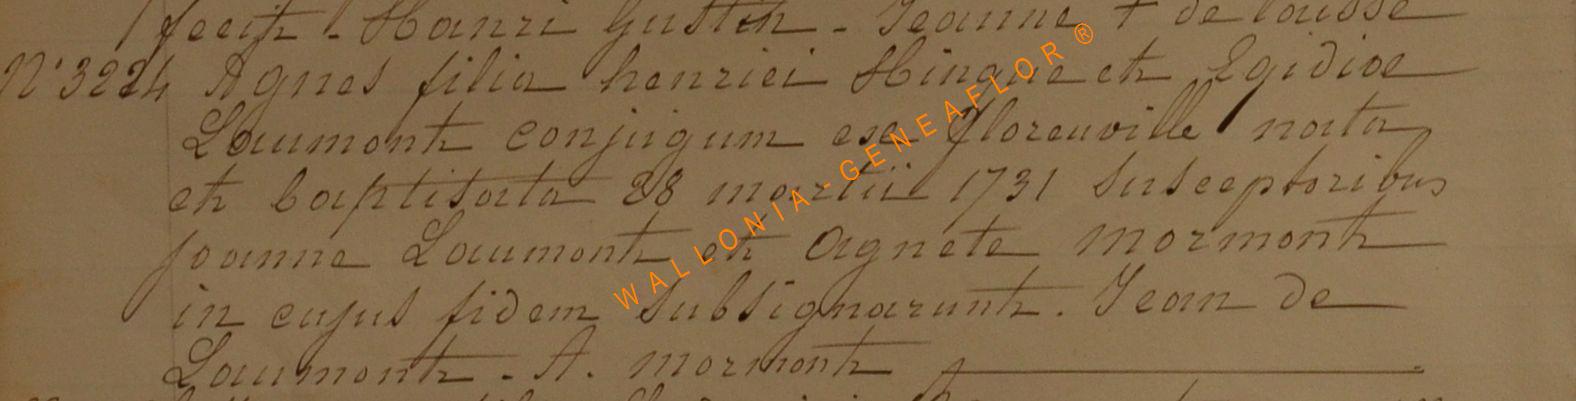 fecit - Hanri Gustin - Jeanne + de
N° 3224 Agnes filia henrici Hinque et Egidiae
Laumont conjugum ex florenville nata
et baptisata 28 martii 1731 Susceptoribus
joanne Laumont et Agnete mormont
in cujus fidem subsignarunt. Jean de
Laumont - A. mormont
WALLONIA-GENEAFLOR®